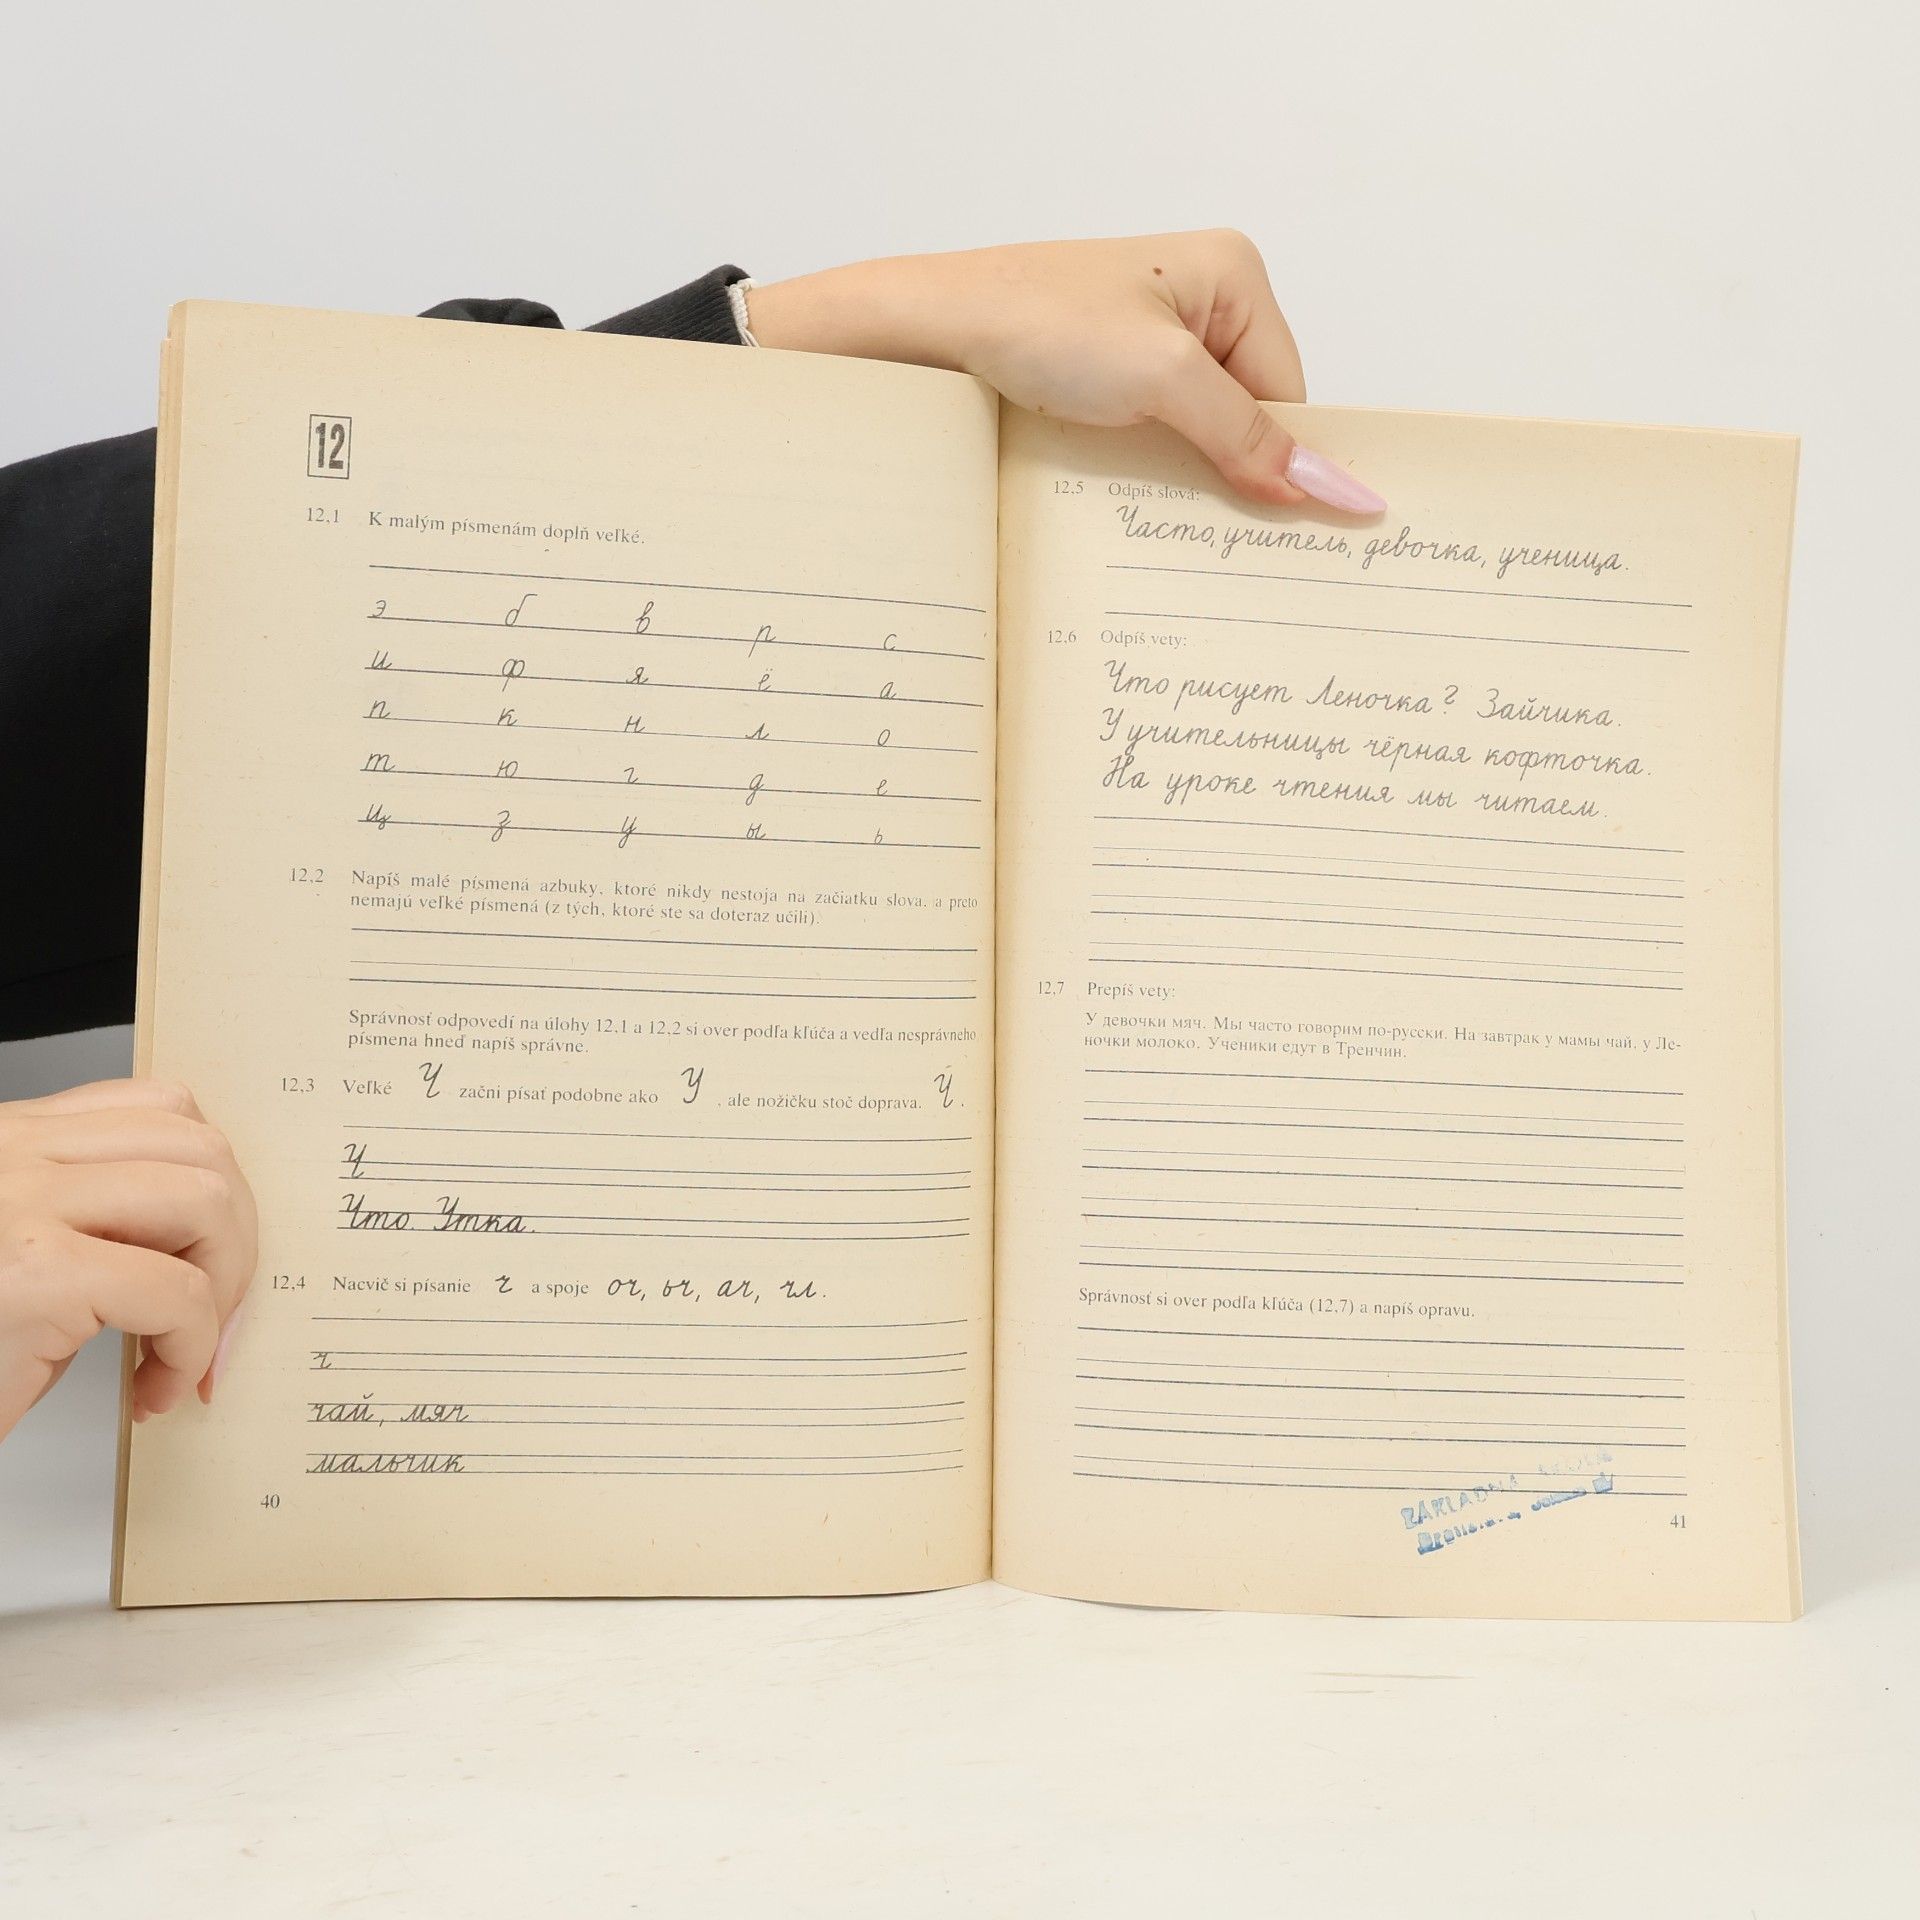 12
12,1 K malým písmenám doplň veľké.
э б в р с
и ф я ё а
п к н л о
т ю г д е
ц з у ы ь
12,2 Napíš malé písmená azbuky, ktoré nikdy nestoja na začiatku slova, a preto
nemajú veľké písmená (z tých, ktoré ste sa doteraz učili).
Správnosť odpovedí na úlohy 12,1 a 12,2 si over podľa kľúča a vedľa nesprávneho
písmena hneď napíš správne.
12,3 Veľké Ч začni písať podobne ako У , ale nožičku stoč doprava. Ч .
Ч
Что. Утка.
12,4 Nacvič si písanie ч a spoje оч, ьч, ач, чл.
ч
чай, мяч
мальчик
40
12,5 Odpíš slová:
Часто, учитель, девочка, ученица.
12,6 Odpíš vety:
Что рисует Леночка? Зайчика.
У учительницы чёрная кофточка.
На уроке чтения мы читаем.
12,7 Prepíš vety:
У девочки мяч. Мы часто говорим по-русски. На завтрак у мамы чай, у Ле-
ночки молоко. Ученики едут в Тренчин.
Správnosť si over podľa kľúča (12,7) a napíš opravu.
ZÁKLADNÁ
41